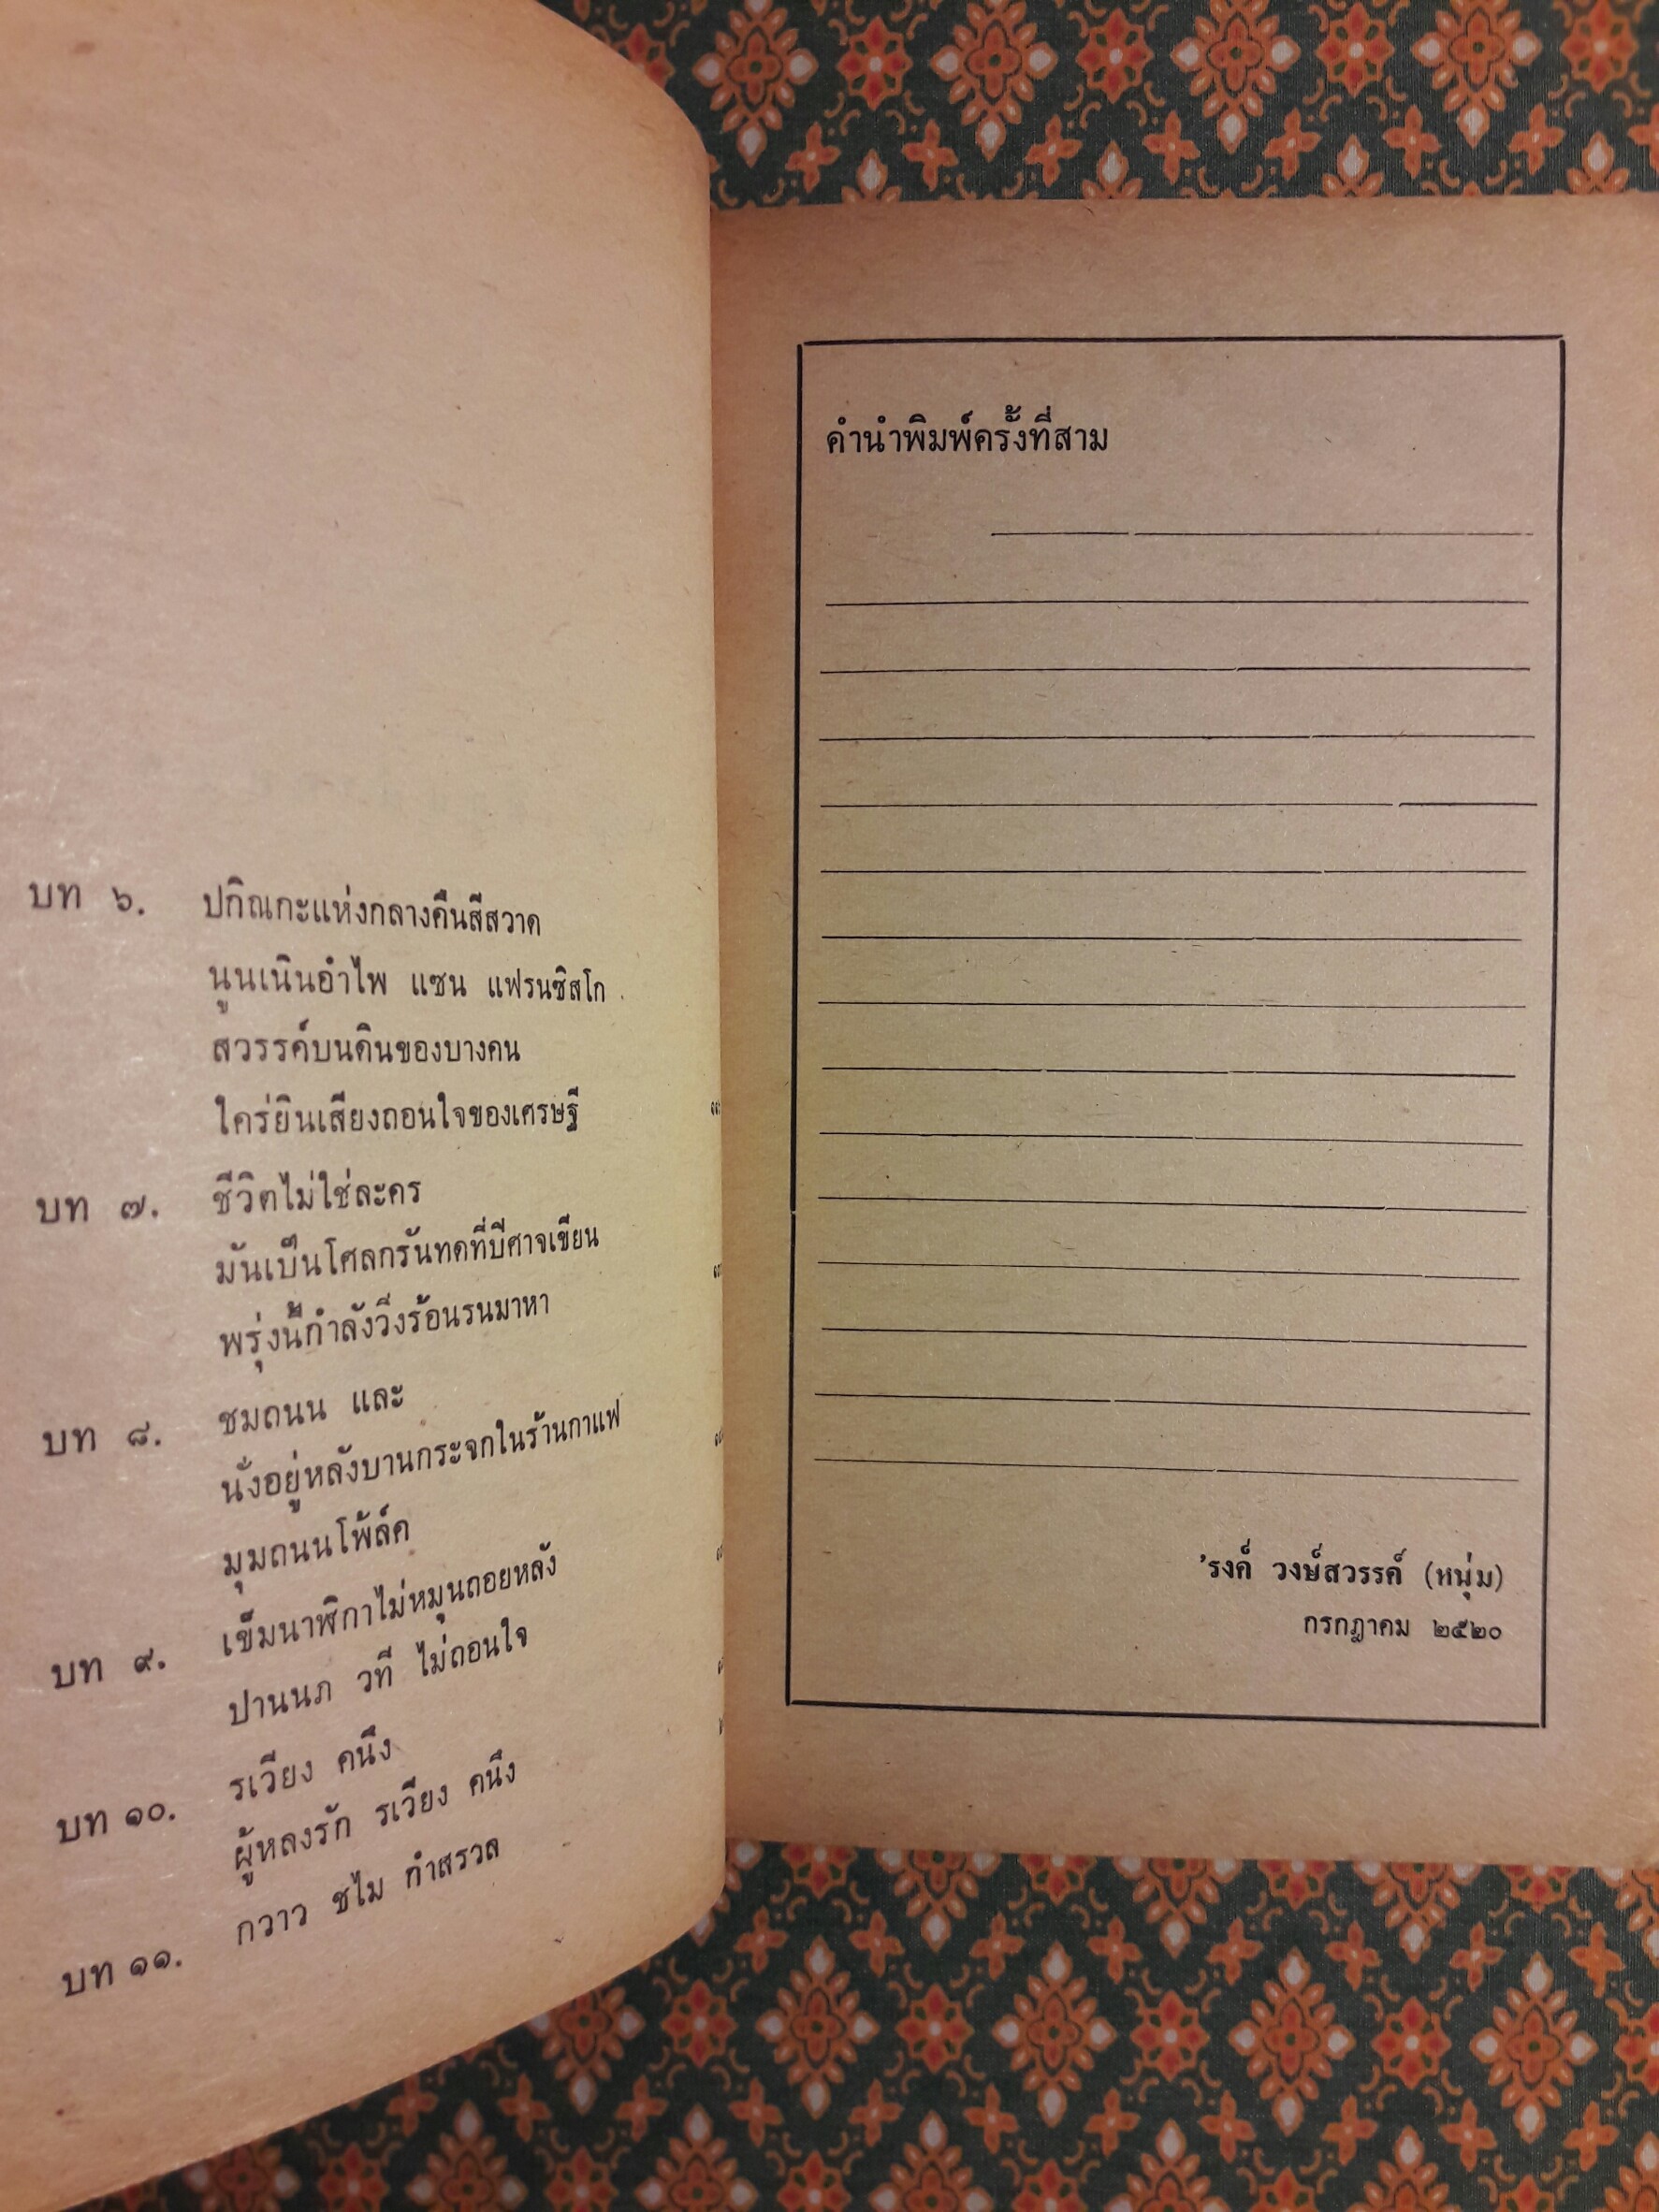 บท ๖. ปกิณกะแห่งกลางคืนสีสวาด
นูนเนินอำไพ แซน แฟรนซิสโก
สวรรค์บนดินของบางคน
ใคร่ยินเสียงถอนใจของเศรษฐี
บท ๗. ชีวิตไม่ใช่ละคร
มันเป็นโศลกรันทดที่ปีศาจเขียน
พรุ่งนี้กำลังวิ่งร้อนรนมาหา
บท ๘. ชมถนน และ
นั่งอยู่หลังบานกระจกในร้านกาแฟ
มุมถนนโพ้ล์ค
บท ๙. เข็มนาฬิกาไม่หมุนถอยหลัง
ปานนภ วที ไม่ถอนใจ
บท ๑๐. รเวียง คนึง
ผู้หลงรัก รเวียง คนึง
บท ๑๑. กวาว ชไม กำสรวล
คำนำพิมพ์ครั้งที่สาม
'รงค์ วงษ์สวรรค์ (หนุ่ม)
กรกฎาคม ๒๕๒๐